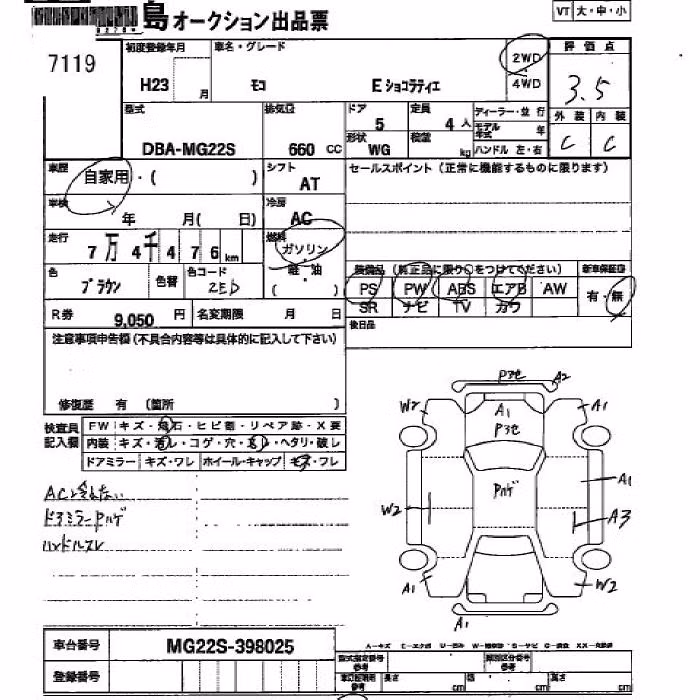 島オークション出品票
VT 大・中・小
7119
初度登録年月 車名・グレード 2WD 評価点
H23 月 モコ E ショコラティエ 4WD 3.5
型式 排気量 ドア 定員 ディーラー・並行 外装 内装
5 4人 モデル年式 年 C C
DBA-MG22S 660 CC 形状 WG 積載 kg ハンドル 左・右
車歴 自家用・( ) シフト AT セールスポイント(正常に機能するものに限ります)
車検 年 月( 日) 冷房 AC
走行 7万4千476km 燃料 ガソリン
軽・油
色 ブラウン 色替 色コード ZEb ( ) 装備品(純正品に限り○をつけてください) 新車保証書
PS PW ABS エアB AW 有・無
SR ナビ TV カワ
R券 9,050円 名変期限 月 日 後日品
注意事項申告欄(不具合内容等は具体的に記入して下さい)
修復歴 有 (箇所 )
検査員記入欄 FW キズ・飛石・ヒビ割・リペア跡・X要
内装 キズ・汚レ・コゲ・穴・スレ・ヘタリ・破レ
ドアミラー キズ・ワレ ホイール・キャップ キズ・フレ
ACと冷えない
ドアミラーPハゲ
ハンドルスレ
Pヨセ A2
W2 A1 A1
Pヨセ
Pハゲ A1
W2 A3
A1 W2
A1
車台番号 MG22S-398025
A-キズ E-エクボ
登録番号 型式指定番号 参考 類別区分番号 参考
車検証明用 参考 長さ cm 幅 cm 高さ cm